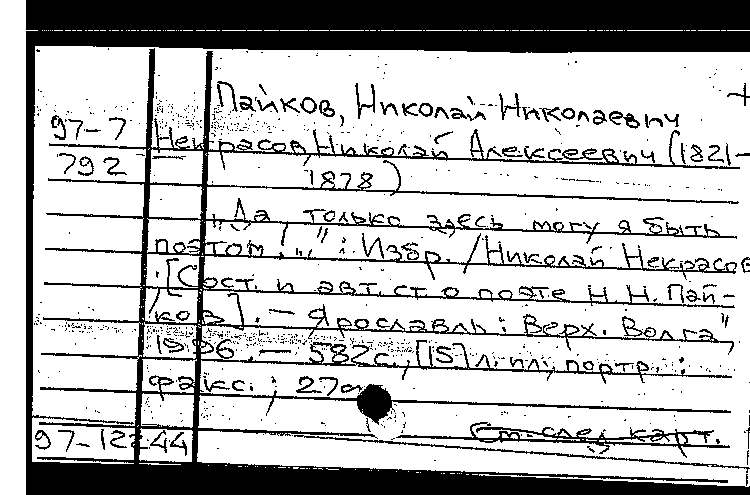 Пайков, Николай Николаевич
97-7
Некрасов, Николай Алексеевич (1821-
792
1878)
„Да, только здесь могу я быть
поэтом!..": Избр. / Николай Некрасов
; [Сост. и авт. ст. о поэте Н. Н. Пай-
ков]. – Ярославль : Верх. Волга",
1996. – 582 с., [15] л. ил., портр. :
факс. ; 27 см
См. след. карт.
97-12244